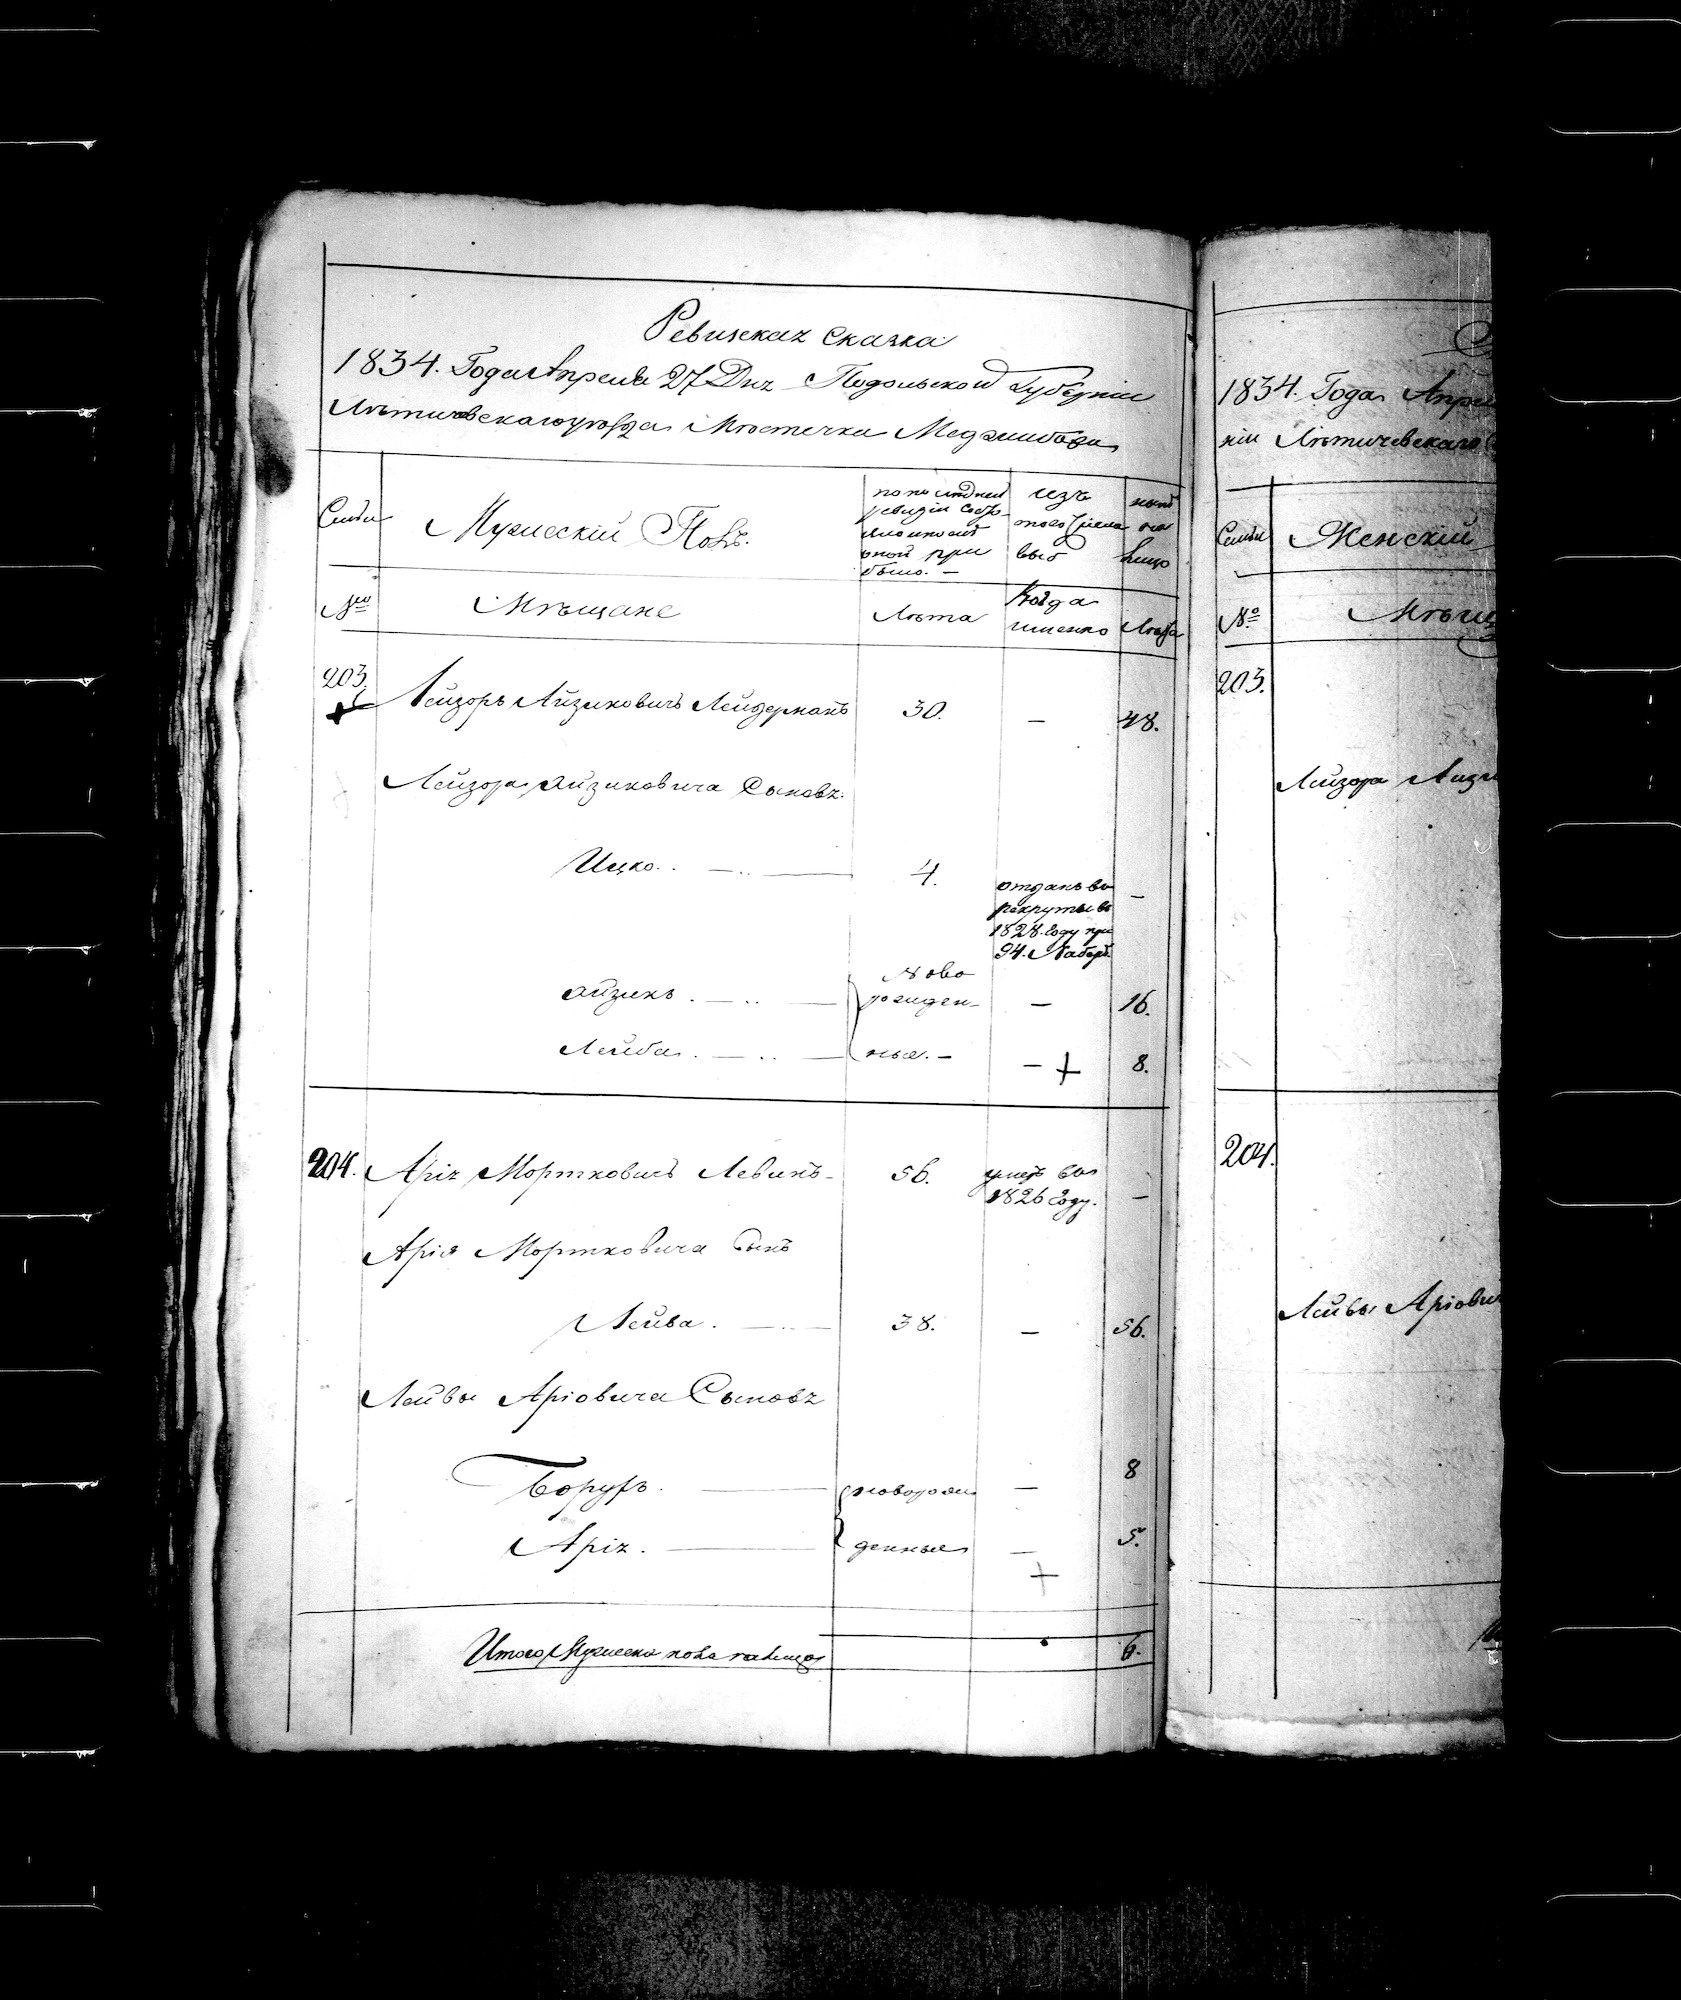 Ревизская Сказка
1834. Года Апреля 27 Дня Подольской Губерніи
Лѣтичевскаго уѣзда Мѣстечка Меджибожа
Семьи
Мужескій Полъ.
по последней
ревизіи состо
яло и после
оной при
было. —
изъ
того числа
выб
нынѣ
на
лицо
№
Мѣщане
Лѣта
Когда
именно
Лѣта
203.
Лейзоръ Айзиковичъ Лейдерманъ 30. — 48.
Лейзора Айзиковича Сыновья.
Ицко. 4. —
отданъ въ
рекруты въ
1828. Году при
94. Наборѣ.
Айзикъ. — 16.
Ново
рожден-
ные. —
Лейба. — 8.
204. Арія Мортковичъ Левинъ 56. —
умеръ въ
1826 Году.
Арія Мортковича Сынъ
Лейва. 38. — 56.
Лейвы Аріовича Сыновья
Борухъ. новорож — 8
Арія. денные — 5.
Итого Мужеска пола налицо 6.
1834. Года Апре
ніи Лѣтичевскаго
Семьи Женскій
№ Мѣщ
203.
Лейзора Айзи
204.
Лейвы Аріович